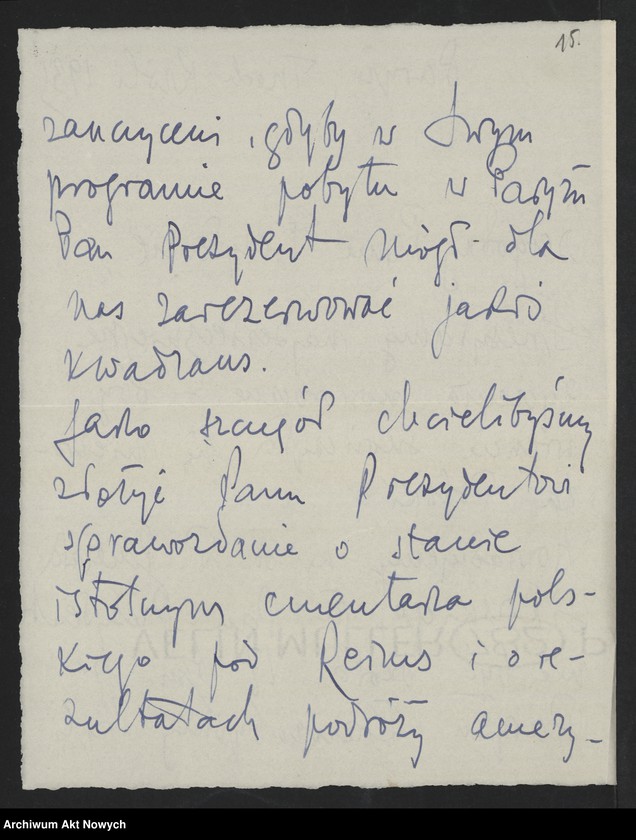 15.
zaszczyceni, gdyby w Swym
programie pobytu w Paryżu
Pan Prezydent mógł dla
nas zarezerwować jakiś
kwadrans.
Jako szczegół chcielibyśmy
złożyć Panu Prezydentowi
sprawozdanie o stanie
istotnym cmentarza pols-
kiego pod Reims i o re-
zultatach podróży amery-
Archiwum Akt Nowych